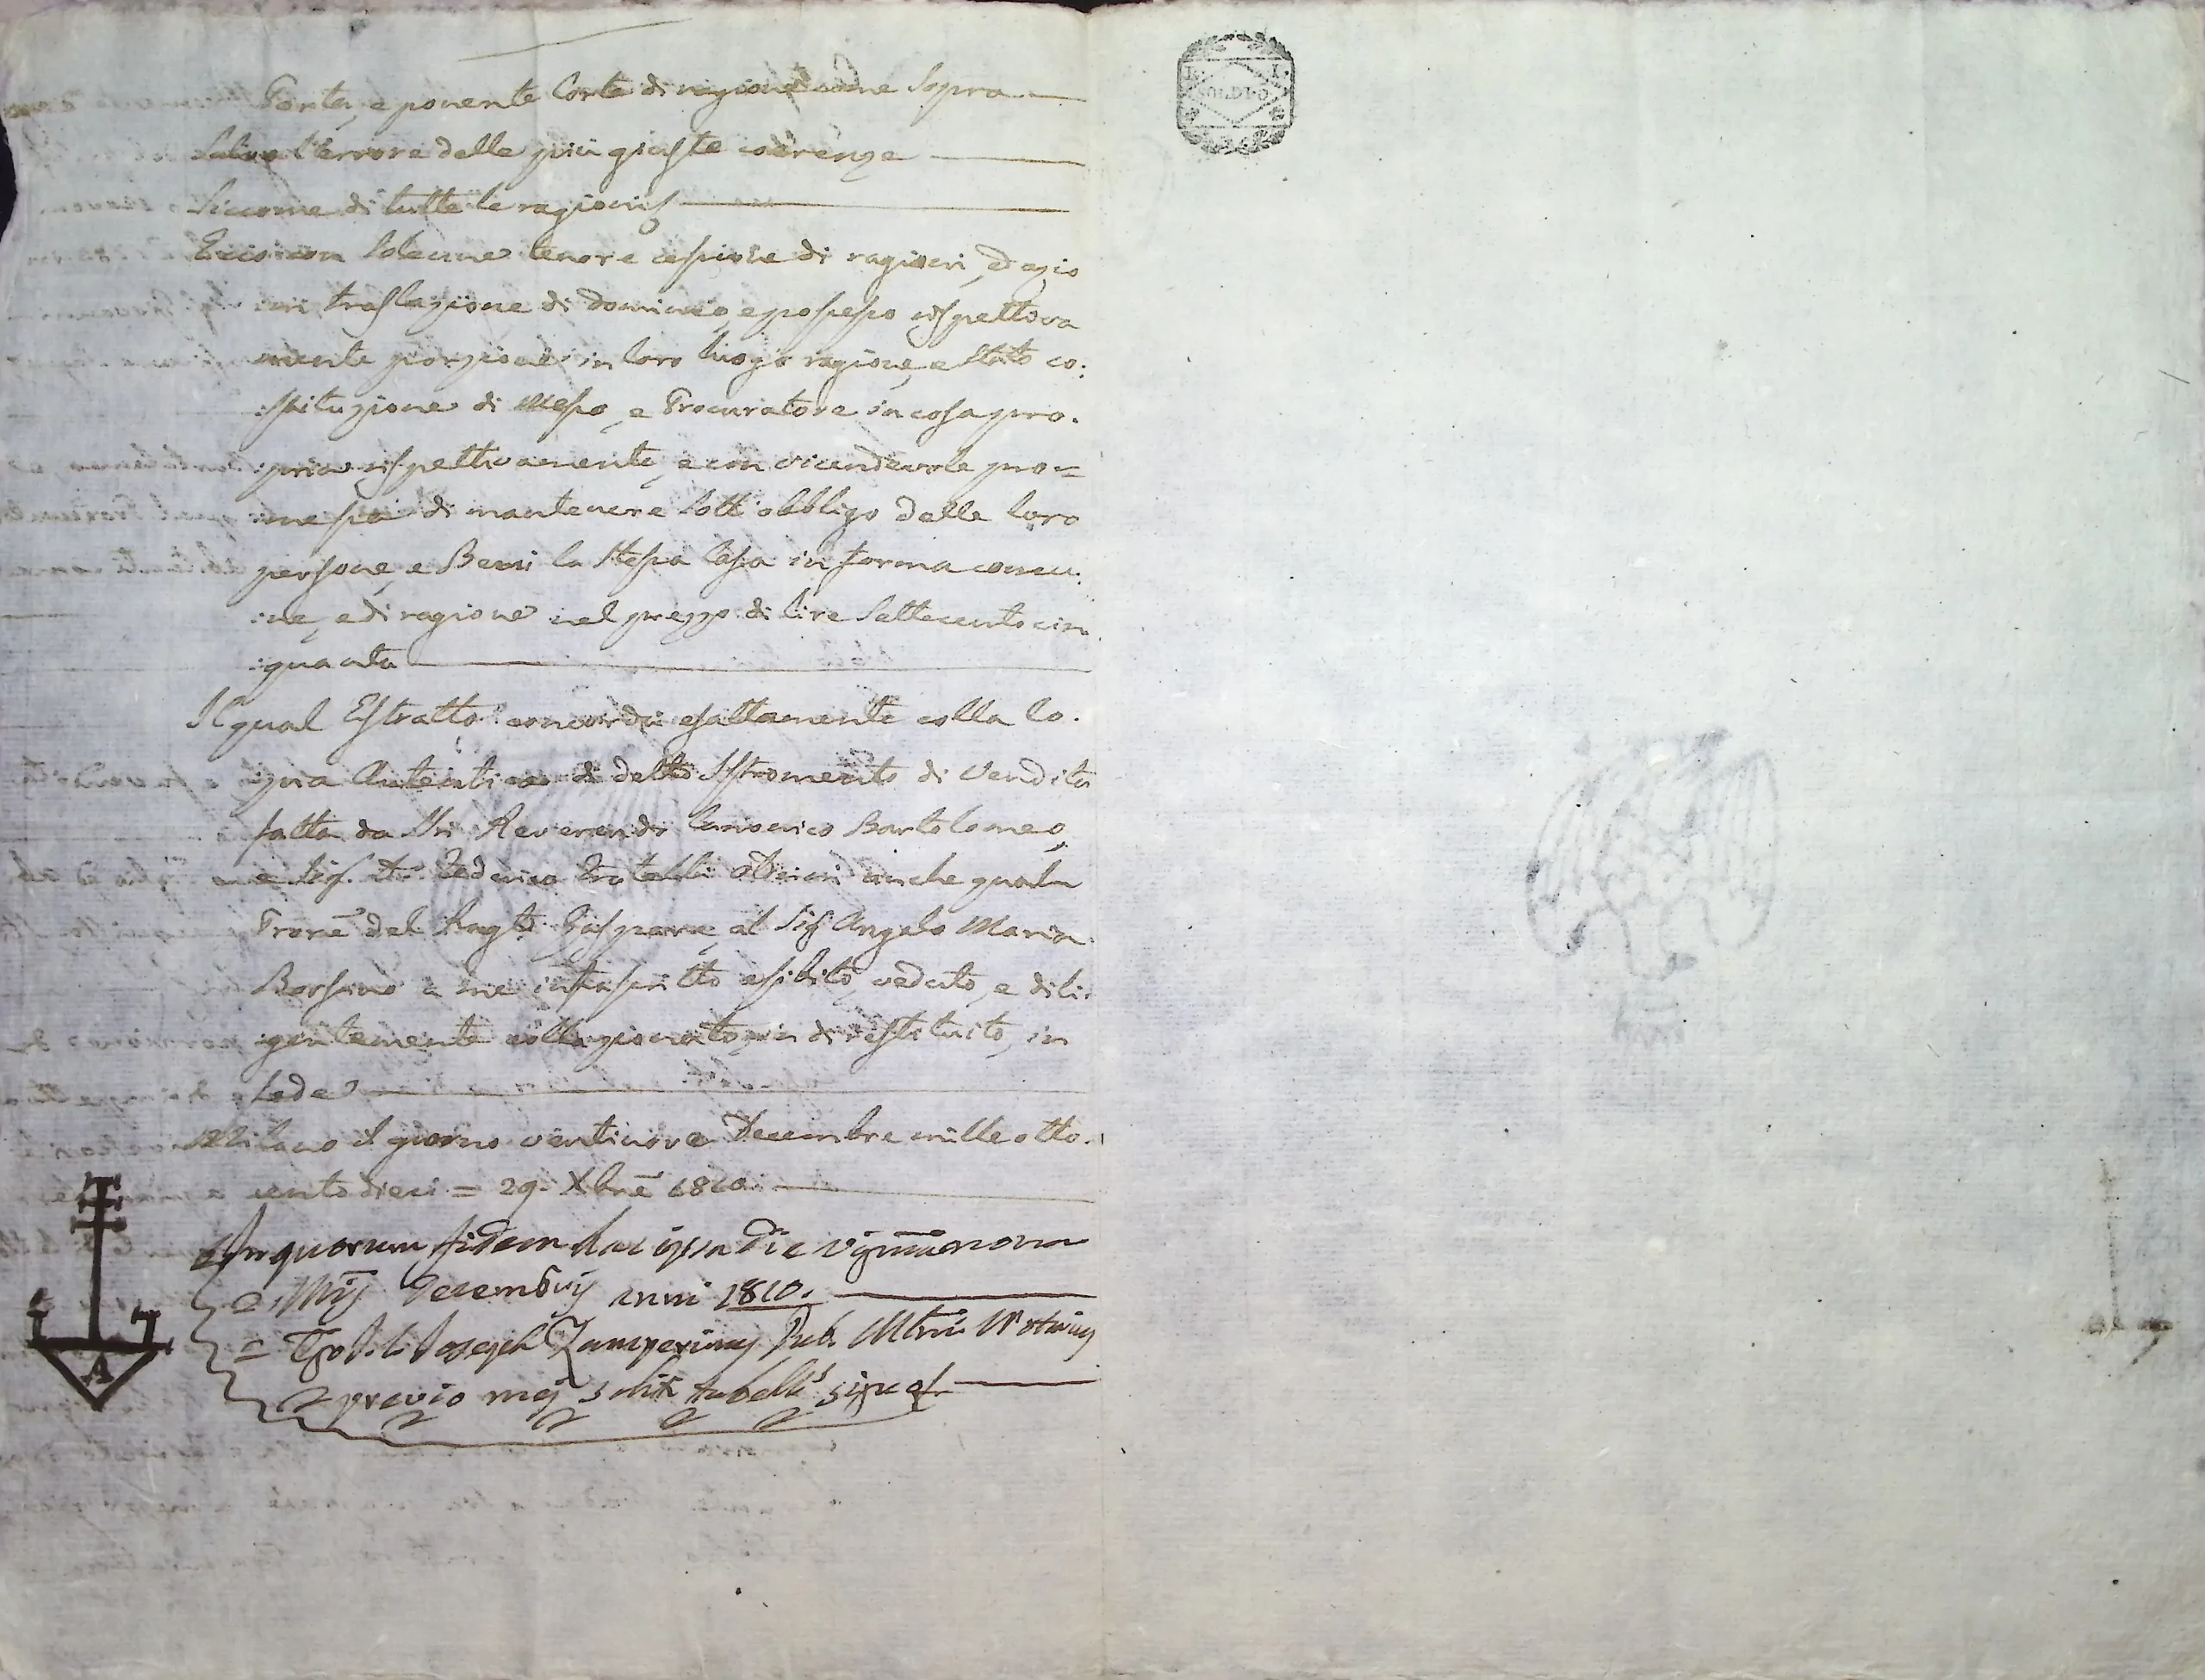 Porta, e ponente Corte di ragione come Sopra
Salvo l'errore delle più giuste coerenze
Siccome di tutte le ragioni
E ciò con Solenne tenore cessione di ragioni, ed azio
:ni traslazione di dominio, e possesso rispettiva
mente porzione in loro luogo ragione, e Stato co:
:stituzione di Messo, e Procuratore in cosa pro.
:pria rispettivamente, e con vicendevole pro=
:messa di mantenere Sott'obbligo delle loro
persone, e Beni la Stessa Casa in forma comu:
:ne, e di ragione nel prezzo di lire Settecento cin
:quanta
Il qual Estratto concorda esattamente colla Co.
:pia Autentica di detto Istromento di Vendita
fatta da Reverendo Canonico Bartolomeo,
e Sig. Federico fratelli anche quale
Prore del Gaspare, al Sig. Angelo Maria
Borsano a me infrascritto esibito, veduto, e dili:
:gentemente collazionato, indi restituito, in
fede
Milano il giorno ventinove Decembre mille otto.
cento dieci = 29. Xbre 1810.
In quorum fidem hac ipsa die vigmanona
Mis Decembris anni 1810.
Joseph Zamperinus Pub. Mlni Notarius
previo mei solit tabell.s sign
A
L. I.
SOLDI